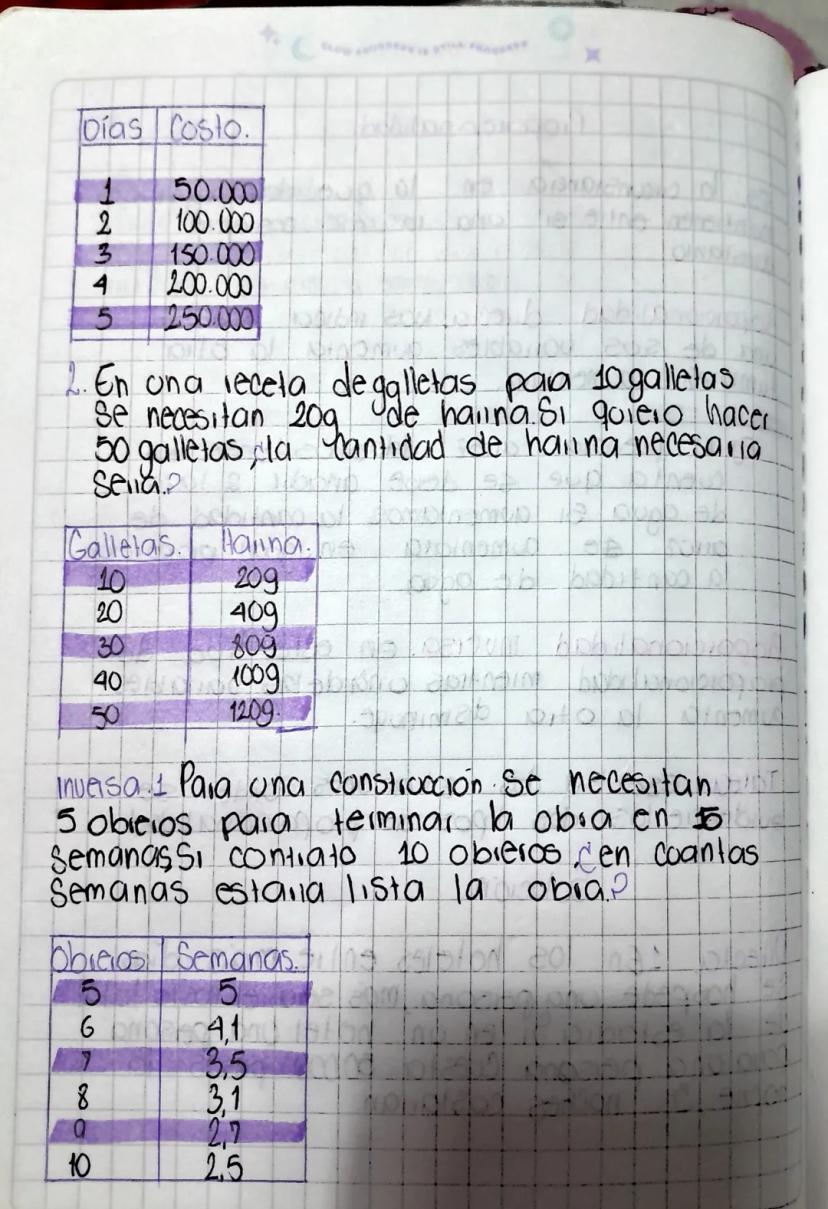 SLOW PROGRESS IS STILL PROGRESS
Días Costo.
1 50.000
2 100.000
3 150.000
4 200.000
5 250.000
2. En una receta de galletas para 10 galletas
se necesitan 20g de harina. Si quiero hacer
50 galletas, ¿la cantidad de harina necesaria
seria?
Galletas. Harina.
10 20g
20 40g
30 80g
40 100g
50 120g.
Inversa.1 Para una construcción se necesitan
5 obreros para terminar la obra en 5
semanas, Si contrato 10 obreros, ¿en cuantas
semanas estaria lista la obra?
Obreros Semanas.
5 5
6 4,1
7 3,5
8 3,1
9 2,7
10 2,5